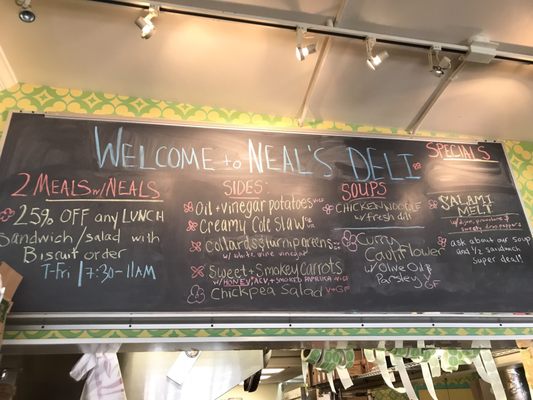 WELCOME to NEAL'S DELI
2 MEALS w/ NEALS
25% OFF any LUNCH
Sandwich/salad with
Biscuit order
T-Fri | 7:30-11AM
SIDES:
Oil + vinegar potatoes
Creamy Cole Slaw
Collards + turnip greens
w/ white wine vinegar
Sweet + Smokey Carrots
w/ HONEY, ACV, + SMOKED PAPRIKA
Chickpea Salad V+GF
SOUPS
CHICKEN NOODLE
w/ fresh dill
Curry
Cauliflower
w/ Olive Oil +
Parsley V GF
SPECIALS
SALAMI
MELT
ask about our soup
and ½ sandwich
super deal!